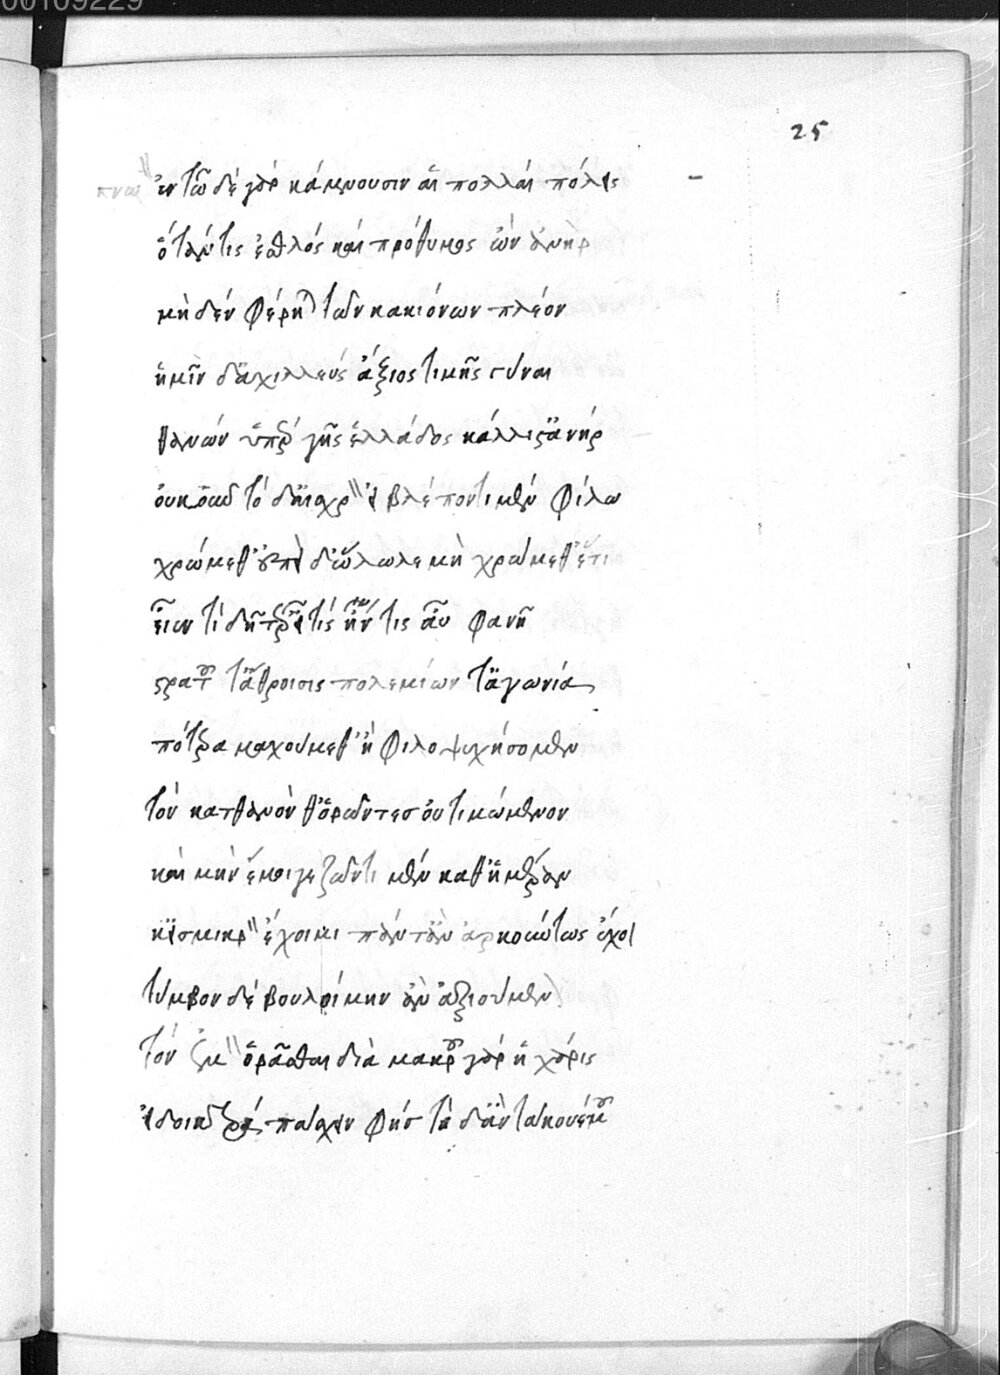 00109229
25
ἐν τῶ δὲ γὰρ κάμνουσιν αἱ πολλαὶ πόλεις
ὅταν τις ἐσθλὸς καὶ πρόθυμος ὢν ἀνὴρ
μὴδὲν φέρηται τῶν κακιόνων πλέον
ἡμῖν δ' ἀχιλλεὺς ἄξιος τιμῆς γύναι
θανὼν ὑπὲρ γῆς ἑλλάδος κάλλιστ' ἀνήρ
οὐκοῦν τό δ' αἰσχρ" εἰ βλέποντι μὲν φίλω
χρώμεθ' ἐπεὶ δ' ὄλωλε μὴ χρώμεθ' ἔτι
εἶεν τί δῆτ' ἐρεῖ τις ἤν τις αὖ φανῆ
στρατοῦ τ' ἄθροισις πολεμίων τ' ἀγωνία
πότερα μαχούμεθ' ἢ φιλοψυχήσομεν
τὸν κατθανόνθ' ὁρῶντες οὐ τιμώμενον
καὶ μὴν ἔμοιγε ζῶντι μὲν καθ' ἡμέραν
κεἰ σμικρ" ἔχοιμι πάντ' ἂν ἀρκούντως ἔχοι
τύμβον δὲ βουλοίμην ἂν ἀξιούμενον
τὸν ἐμ" ὁρᾶσθαι διὰ μακροῦ γὰρ ἡ χάρις
εἰ δ' οἰκτρὰ πάσχειν φὴς τὰ δ' ἀντάκουέ μου